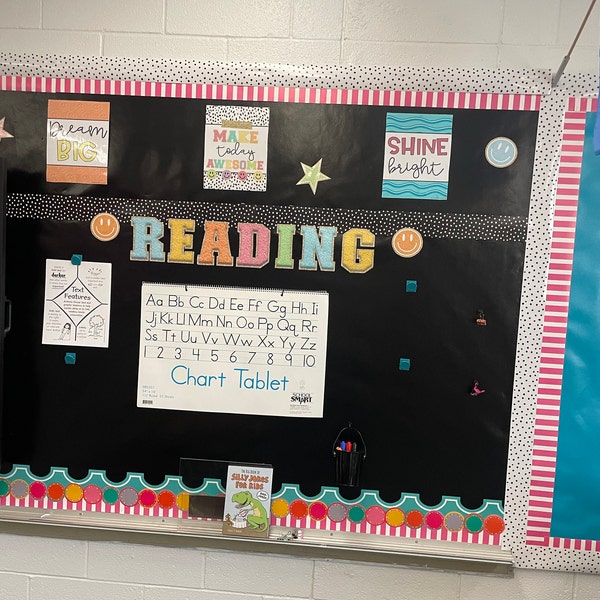 Dream
BIG
MAKE
today
AWESOME
SHINE
bright
READING
Text
Features
Aa Bb Cc Dd Ee Ff Gg Hh Ii
Jj Kk Ll Mm Nn Oo Pp Qq Rr
Ss Tt Uu Vv Ww Xx Yy Zz
1 2 3 4 5 6 7 8 9 10
Chart Tablet
SCHOOL
SMART
THE BIG BOOK OF
SILLY JOKES
FOR KIDS